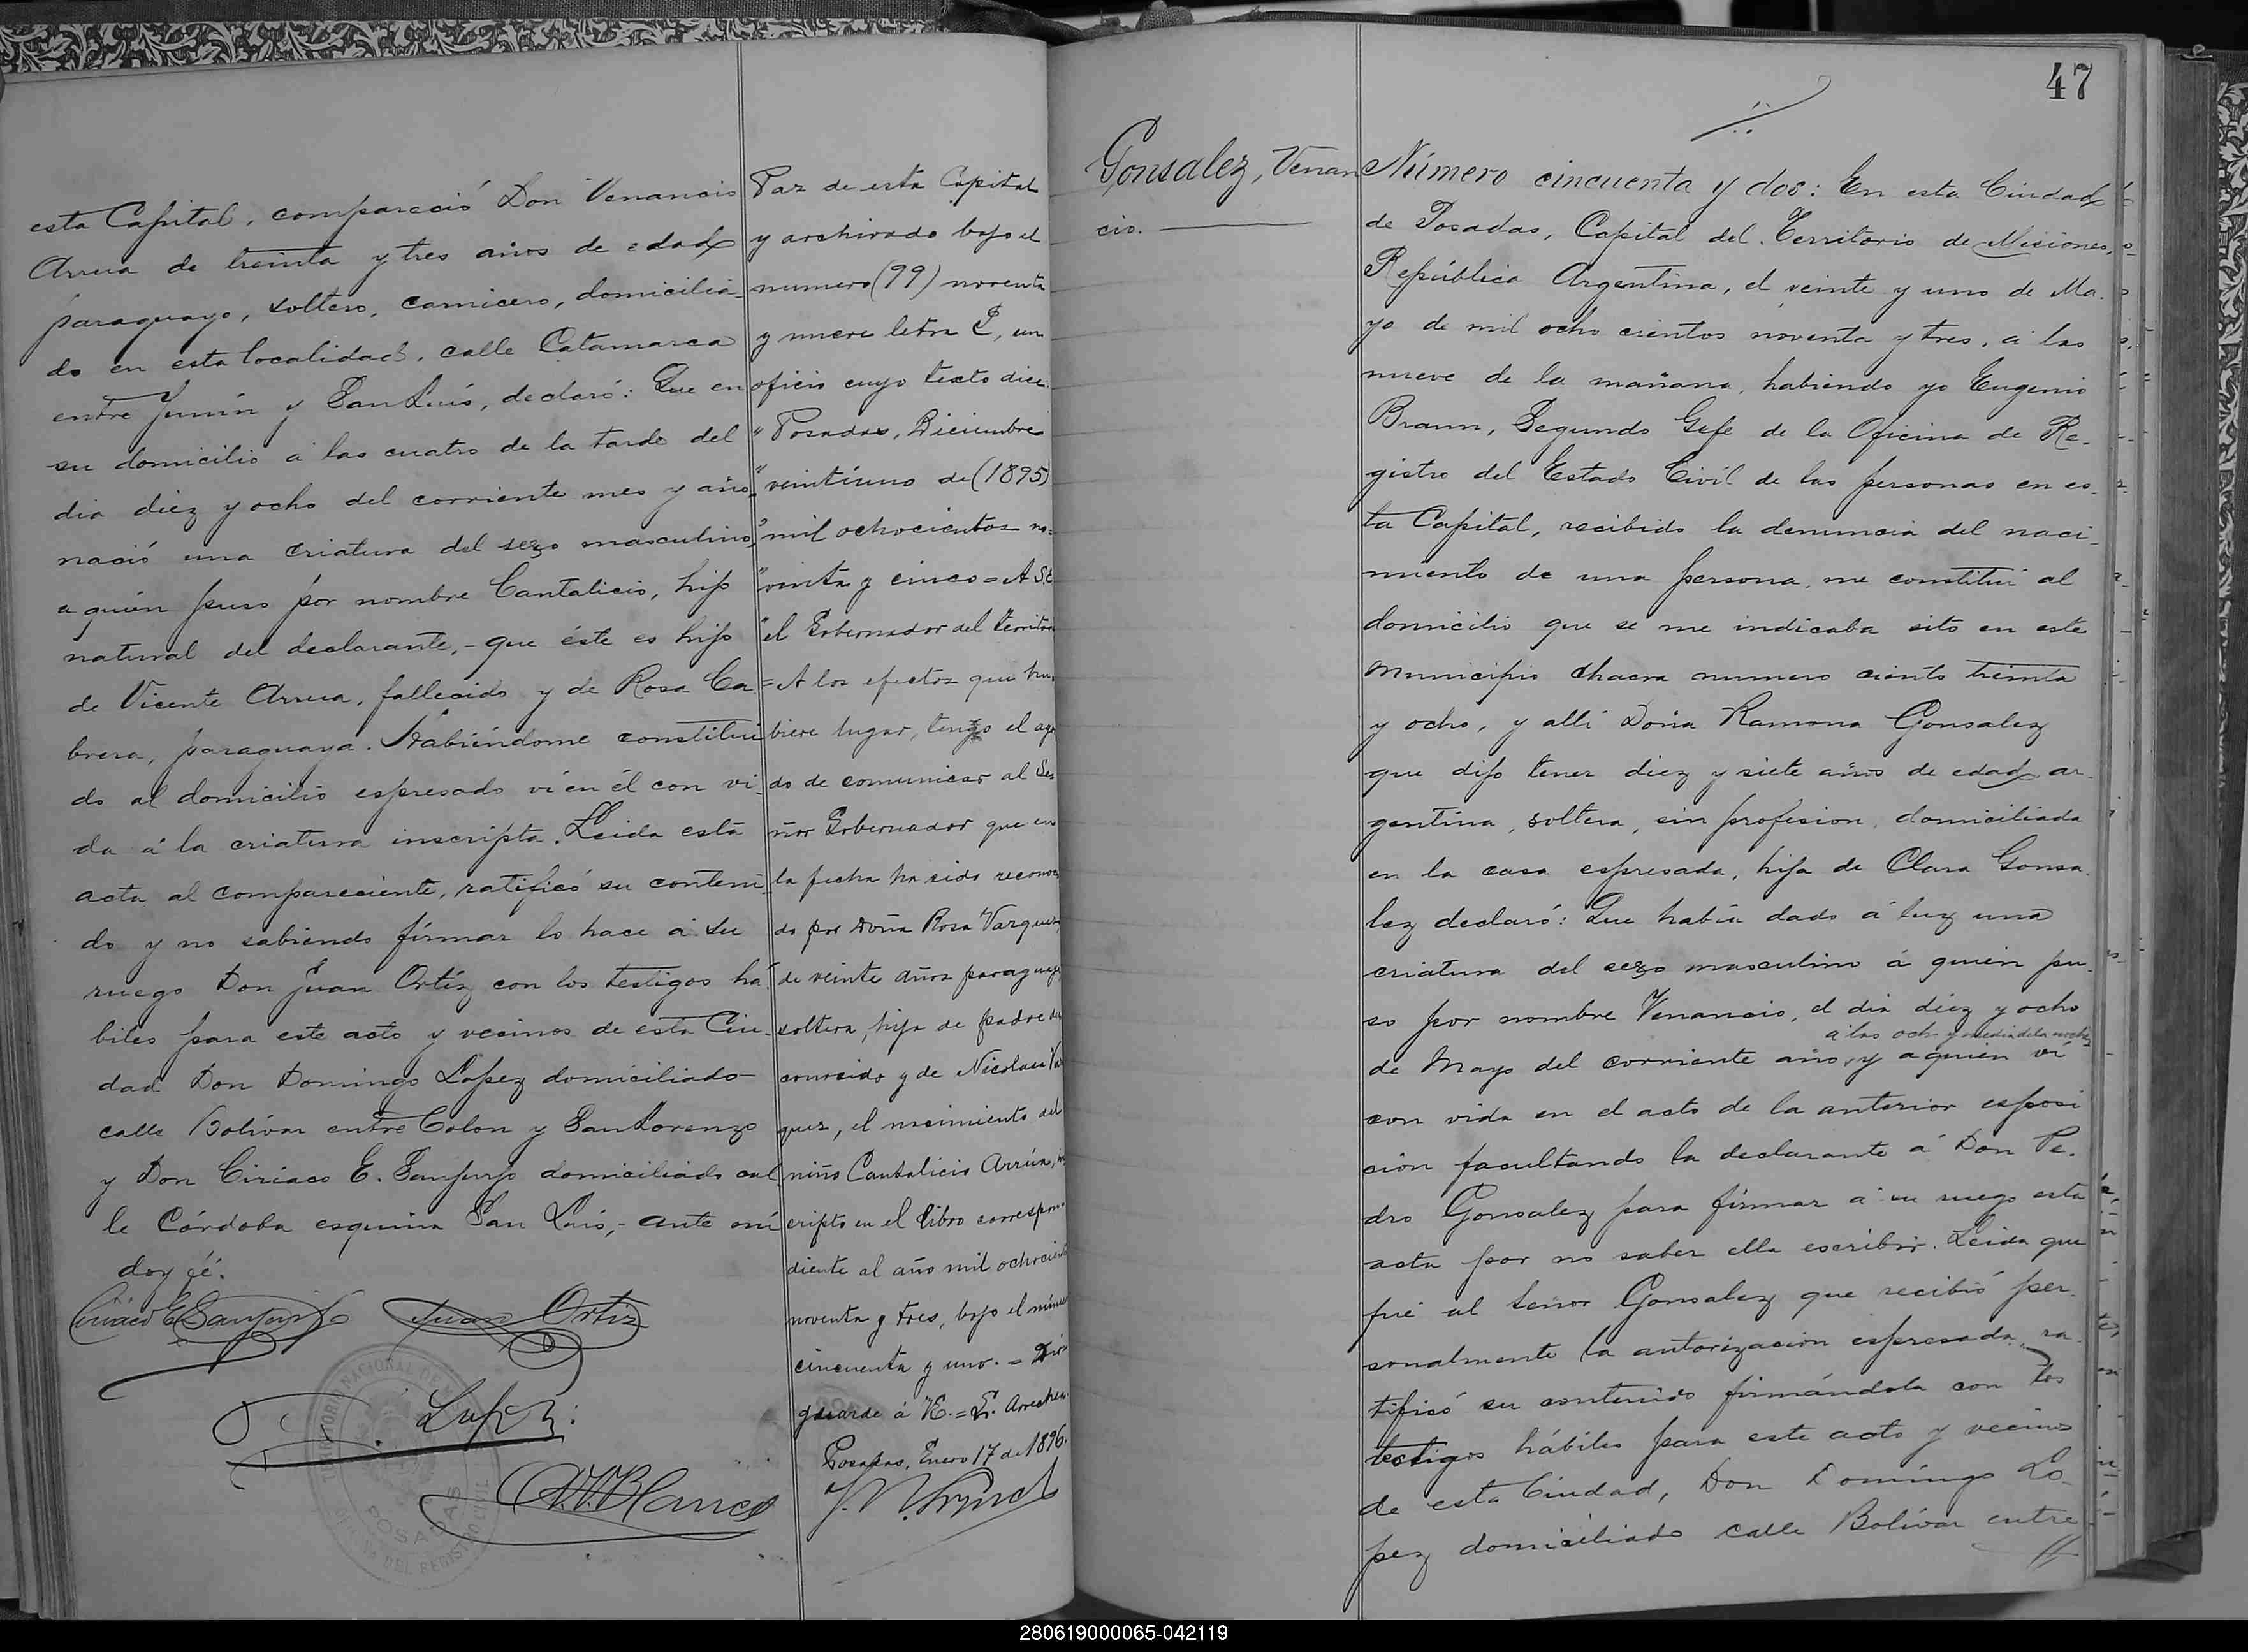 esta Capital, compareció Don Venancio
Arrua de treinta y tres años de edad
paraguayo, soltero, carnicero, domicilia
do en esta localidad, calle Catamarca
entre Junín y San Luis, declaró: Que en
su domicilio á las cuatro de la tarde del
dia diez y ocho del corriente mes y año
nació una criatura del sexo masculino,
a quién puso por nombre Cantalicio, hijo
natural del declarante,- que éste es hijo
de Vicente Arrua, fallecido y de Rosa Ca
brera, paraguaya. Habiéndome constitui
do al domicilio espresado ví en él con vi
da á la criatura inscripta. Leida esta
acta al compareciente, ratificó su conteni
do y no sabiendo firmar lo hace á su
ruego Don Juan Ortíz con los testigos há
biles para este acto y vecinos de esta Ciu-
dad Don Domingo Lopez domiciliado
calle Bolívar entre Colon y San Lorenzo
y Don Ciriaco E. Sanjurjo domiciliado cal
le Córdoba esquina San Luis,- ante mí
doy fé.
Ciriaco E Sanjurjo Juan Ortiz
Lopez
Blanco
POSADAS
Paz de esta Capital
y archivado bajo el
numero (99) noventa
y nueve letra E, un
oficio cuyo texto dice:
"Posadas, Diciembre
"veintiuno de (1895)
"mil ochocientos no=
"venta y cinco = A SE
"el Gobernador del Territor
= A los efectos que hu
biere lugar, tengo el agr
do de comunicar al Se
ñor Gobernador que en
la fecha ha sido reconoc
do por Doña Rosa Varques
de veinte años paraguaya
soltera, hija de padre des
conocido y de Nicolasa Var
ques, el nacimiento del
niño Cantalicio Arrúa, in
cripto en el libro correspon
diente al año mil ochocient
noventa y tres, bajo el númer
cincuenta y uno. = Dios
guarde á V.E. = E.
Posadas, Enero 17 de 1896.
47
Gonsalez, Venan
cio.
Número cincuenta y dos: En esta Ciudad
de Posadas, Capital del Territorio de Misiones,
República Argentina, el veinte y uno de Ma-
yo de mil ocho cientos noventa y tres, á las
nueve de la mañana, habiendo yo Eugenio
Braun, Segundo Gefe de la Oficina de Re-
gistro del Estado Civíl de las personas en es-
ta Capital, recibido la denuncia del naci-
miento de una persona, me constituí al
domicilio que se me indicaba sito en este
Municipio chacra numero ciento treinta
y ocho, y allí Doña Ramona Gonsalez
que dijo tener diez y siete años de edad, ar-
gentina, soltera, sin profesion, domiciliada
en la casa espresada, hija de Clara Gonsa-
lez declaró: Que había dado á luz una
criatura del sexo masculino á quién pu-
so por nombre Venancio, el dia diez y ocho
á las ocho y media de la noche
de Mayo del corriente año, y a quién ví
con vida en el acto de la anterior esposi
ción facultando la declarante á Don Pe-
dro Gonsalez para firmar á su ruego esta
acta por no saber ella escribir. Leida que
fué al señor Gonsalez que recibió per-
sonalmente la autorización espresada, ra-
tificó su contenido firmándola con los
testigos hábiles para este acto y vecinos
de esta Ciudad, Don Domingo Lo-
pez domiciliado calle Bolívar entre
280619000065-042119